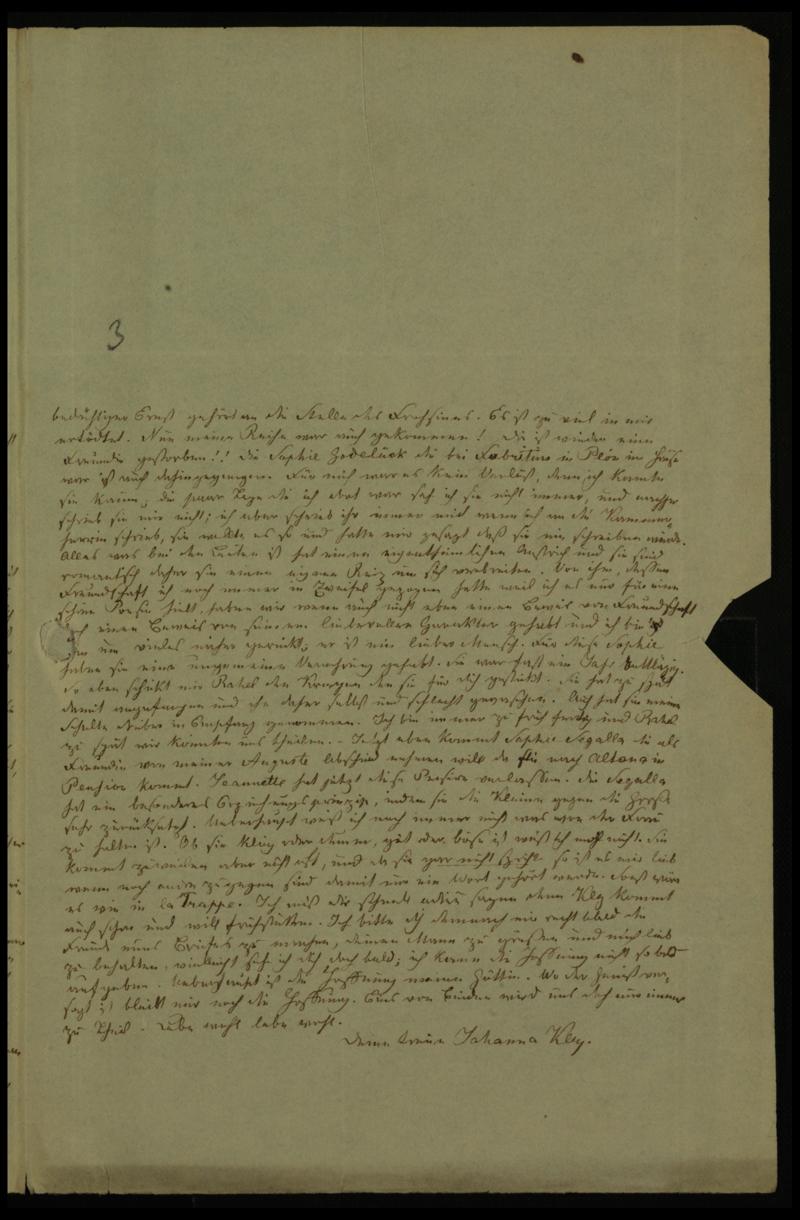 3
bedächtiger Ernst gehört an die Stelle des Frohsinns. Es ist zu viel in mir
ertödtet. Nun meine Reihe war auch gekommen! Da ist wieder eine
Freundin gestorben!! Die Sophie die bei in Plön im Hause
war ist auch dahingegangen. Für mich war es kein Verlust, denn ich kannte
sie kaum; die paar Tage die ich dort war sah ich sie nicht immer, und nachher
schrieb sie mir nicht; ich aber schrieb ihr immer mit wenn ich an die Kammer
herrin schrieb, sie wollte es so und hatte mir gesagt daß sie mir schreiben würde.
Alles was bei den Leuten ist hat einen eigenthümlichen Anstrich und sie sind
romantisch daher sie einen eignen Reiz um sich verbreiten. Von ihm, dessen
Freundschaft ich noch immer in Zweifel gezogen hatte weil ich es nur für eine
schöne Poesie hielt, haben wir wenn auch nicht eben einen Beweis von Freundschaft
doch einen Beweis von seinem liberalen Charakter gehabt und ich bin
ihm um vieles näher gerückt; er ist ein lieber Mensch. Für diese Sophie
haben sie eine ungemeine Verehrung gehabt. Sie war fast ein Jahr
So eben schickt mir Rahel den Kragen den sie für dich gestickt. Sie hat zu spät
damit angefangen und ihn daher selbst und schlecht gewaschen. Auch hat sie meine
Schelte drüber in Empfang genommen. Ich bin immer zu früh fertig und Rahel
zu spät wir könnten uns theilen. – Jetzt eben kommt Sophie Segalla die als
Freundin von meiner Auguste Abschied nehmen will da sie nach Altona in
Pension kommt. Jeannette hat jetzt diese Pension verlassen. Die Segalla
hat ein besonderes Erziehungsprinzip, indem sie die Kleinen gegen die Große
sehr zurücksetzt. Ueberhaupt weiß ich noch immer nicht was von der Frau
zu halten ist. Ob sie klug oder dumm, gut oder böse ist weiß ich noch nicht. Sie
kommt zuweilen aber nicht oft, und da sie gar nicht spricht so ist es mir lieb
wenn noch andre zugegen sind damit nur ein Wort gehört werde. sonst wäre
es wie in la Trappe. Ich muß dir schnell adieu sagen denn Kley kommt
auch schon und will frühstücken. Ich bitte dich demnach mir recht bald die
Freude eines Briefes zu machen, deinen Mann zu grüßen und mich lieb
zu behalten, vielleicht seh ich dich doch bald; ich kann die Hoffnung nicht so bald
aufgeben. Ueberhaupt ist die Hoffnung meine Göttin. Wo der Genuß ver-
sagt ist bleibt mir noch die Hoffnung. Eins von beiden wird uns doch nur immer
zu Theil. Lebe wohl lebe wohl.
Deine treue Johanna Kley.